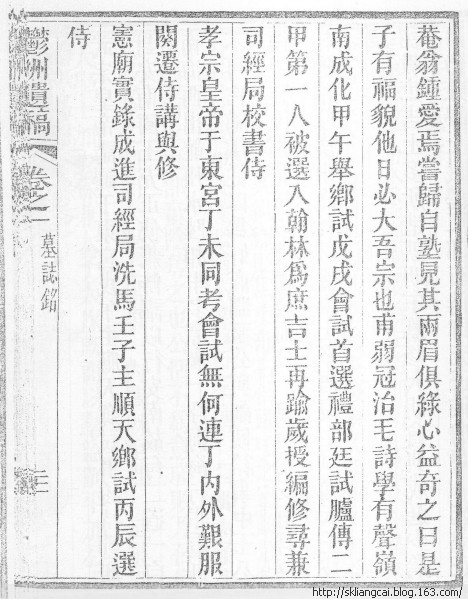 菴翁鍾愛焉嘗歸自塾見其兩眉俱綠心益奇之曰是
子有福貌他日必大吾宗也甫弱冠治毛詩學有聲嶺
南成化甲午舉鄉試戊戌會試首選禮部廷試臚傳二
甲第一人被選入翰林爲庶吉士再踰歲授編修尋兼
司經局校書侍
孝宗皇帝于東宮丁未同考會試無何連丁內外艱服
闋遷侍講與修
憲廟實錄成進司經局洗馬壬子主順天鄉試丙辰選
侍
鬱洲遺稿 卷之 墓誌銘
http://skliangcai.blog.163.com/